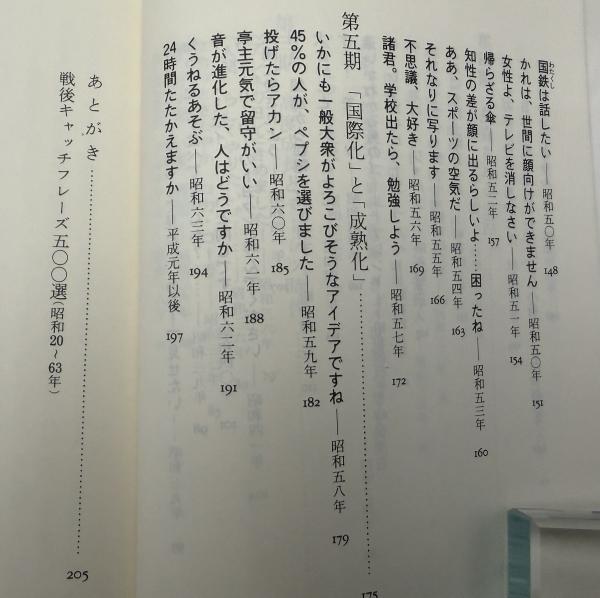 国鉄(わたくし)は話したい——昭和五〇年 148
かれは、世間に顔向けができません——昭和五〇年 151
女性よ、テレビを消しなさい——昭和五一年 154
帰らざる傘——昭和五二年 157
知性の差が顔に出るらしいよ……困ったね——昭和五三年 160
ああ、スポーツの空気だ——昭和五四年 163
それなりに写ります——昭和五五年 166
不思議、大好き——昭和五六年 169
諸君。学校出たら、勉強しよう——昭和五七年 172
第五期 「国際化」と「成熟化」…………………… 175
いかにも一般大衆がよろこびそうなアイデアですね——昭和五八年 179
45%の人が、ペプシを選びました——昭和五九年 182
投げたらアカン——昭和六〇年 185
亭主元気で留守がいい——昭和六一年 188
音が進化した、人はどうですか——昭和六二年 191
くうねるあそぶ——昭和六三年 194
24時間たたかえますか——平成元年以後 197
あとがき…………………… 205
戦後キャッチフレーズ五〇〇選(昭和20〜63年)